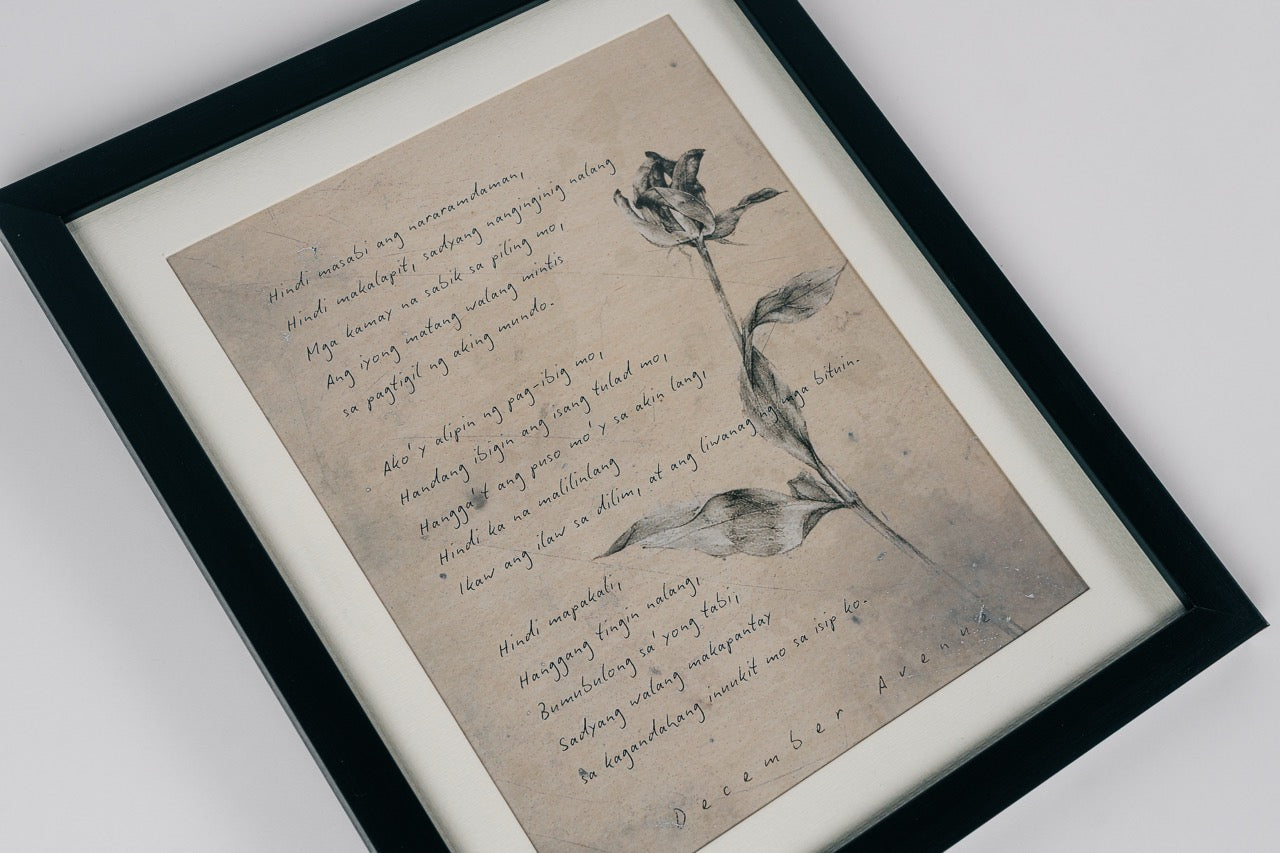 Hindi masabi ang nararamdaman,
Hindi makalapit, sadyang nanginginig nalang
Mga kamay na sabik sa piling mo,
Ang iyong matang walang mintis
sa pagtigil ng aking mundo.
Ako'y alipin ng pag-ibig mo,
Handang ibigin ang isang tulad mo,
Hangga't ang puso mo'y sa akin lang,
Hindi ka na malilinlang
Ikaw ang ilaw sa dilim, at ang liwanag ng mga bituin.
Hindi mapakali,
Hanggang tingin nalang,
Bumubulong sa'yong tabi,
Sadyang walang makapantay
sa kagandahang inuukit mo sa isip ko.
December Avenue